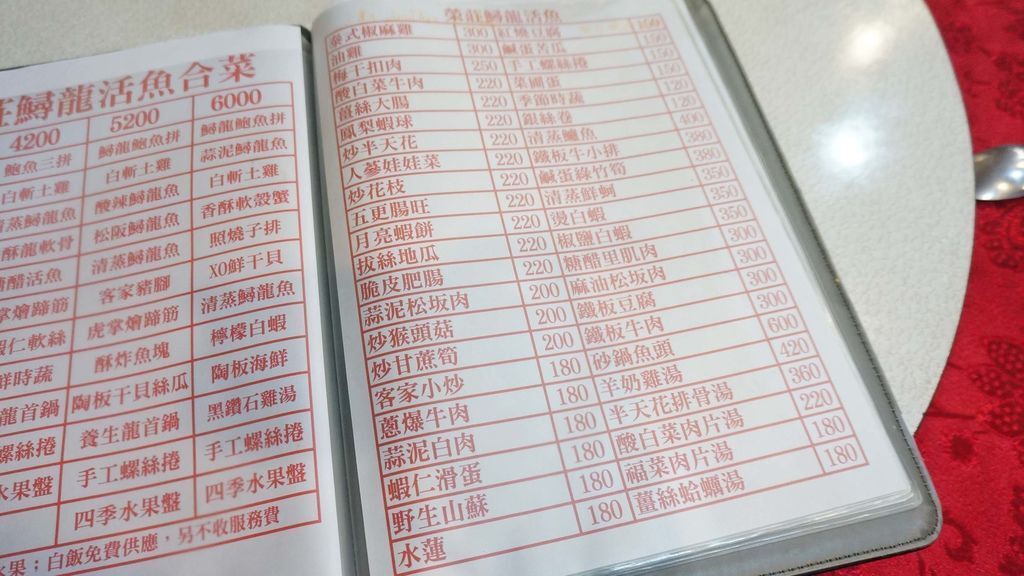 荘鱘龍活魚合菜
4200 5200 6000
鮑魚三拼 鱘龍鮑魚拼 鱘龍鮑魚拼
白斬土雞 白斬土雞 蒜泥鱘龍魚
清蒸鱘龍魚 酸辣鱘龍魚 白斬土雞
酥龍軟骨 松阪鱘龍魚 香酥軟殼蟹
糖醋活魚 清蒸鱘龍魚 照燒子排
掌燴蹄筋 客家豬腳 XO鮮干貝
蝦仁軟絲 虎掌燴蹄筋 清蒸鱘龍魚
鮮時蔬 酥炸魚塊 檸檬白蝦
龍首鍋 陶板干貝絲瓜 陶板海鮮
螺絲捲 養生龍首鍋 黑鑽石雞湯
水果盤 手工螺絲捲 手工螺絲捲
四季水果盤 四季水果盤
水果；白飯免費供應，另不收服務費
榮莊鱘龍活魚
泰式椒麻雞 300 紅燒豆腐 150
油雞 300 鹹蛋苦瓜 150
梅干扣肉 250 手工螺絲捲 150
酸白菜牛肉 220 菜圃蛋 150
薑絲大腸 220 季節時蔬 120
鳳梨蝦球 220 銀絲卷 120
炒半天花 220 清蒸鱸魚 400
人蔘娃娃菜 220 鐵板牛小排 380
炒花枝 220 鹹蛋綠竹筍 380
五更腸旺 220 清蒸鮮蚵 350
月亮蝦餅 220 燙白蝦 350
拔絲地瓜 220 椒鹽白蝦 350
脆皮肥腸 220 糖醋里肌肉 300
蒜泥松坂肉 200 麻油松坂肉 300
炒猴頭菇 200 鐵板豆腐 300
炒甘蔗筍 200 鐵板牛肉 300
客家小炒 180 砂鍋魚頭 600
蔥爆牛肉 180 羊奶雞湯 420
蒜泥白肉 180 半天花排骨湯 360
蝦仁滑蛋 180 酸白菜肉片湯 220
野生山蘇 180 福菜肉片湯 180
水蓮 180 薑絲蛤蠣湯 180